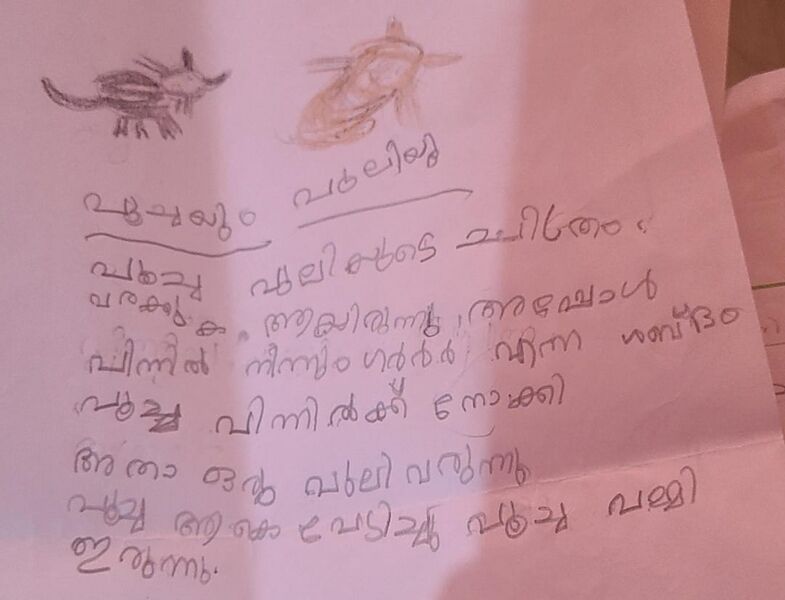 പൂച്ചയും പുലിയു
പൂച്ച പുലിയുടെ ചിത്രം
വരക്കുക ആയിരുന്നു അപ്പോൾ
പിന്നിൽ നിന്നും ഗർർർ എന്ന ശബ്ദം
പൂച്ച പിന്നിൽക്ക് നോക്കി
അതാ ഒരു പുലി വരുന്നു
പൂച്ച ആകെ പേടിച്ചു പൂച്ച പമ്മി
ഇരുന്നു.